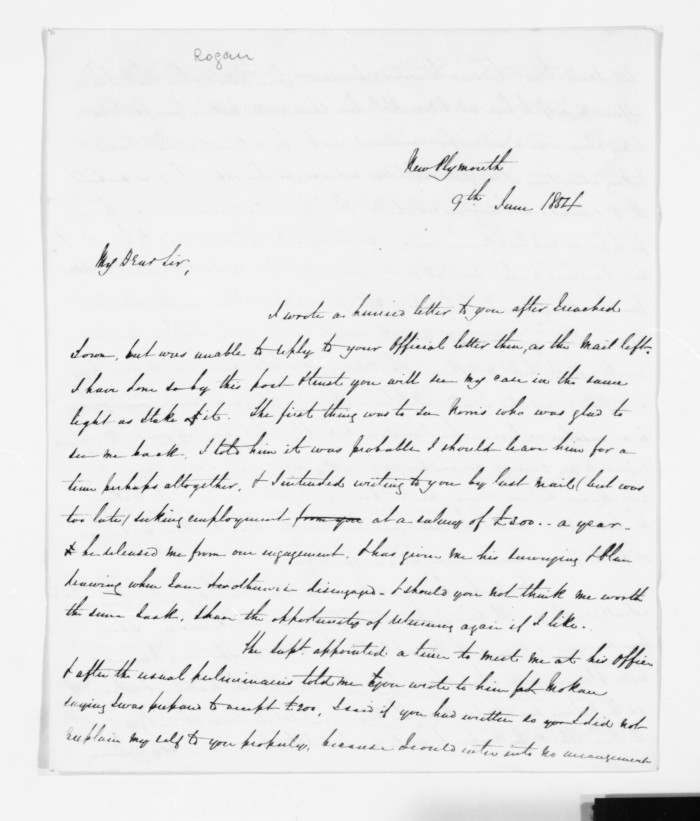 Rogan
New Plymouth
9th June 1854
My Dear Sir,
I wrote a hurried letter to you after I reached
Town, but was unable to reply to your Official letter then, as the Mail left.
I have done so by this post & trust you will see my case in the same
light as I take it. The first thing was to see Norris who was glad to
see me back. I told him it was probable I should leave him for a
time perhaps altogether, & I intended writing to you by last mail (but was
too late) seeking employment from you at a salary of £200.. a year -
& he released me from our engagement. & has given me his surveying & Plan
drawing when I am otherwise disengaged - & should you not think me worth
the sum I ask, I have the opportunity of returning again if I like..
The Supt. appointed a time to meet me at his Office
& after the usual preliminaries told me you wrote to him from Mokau
saying I was prepared to accept £200, I said if you had written so I did not
explain my self to you properly, because I could enter into no arrangement